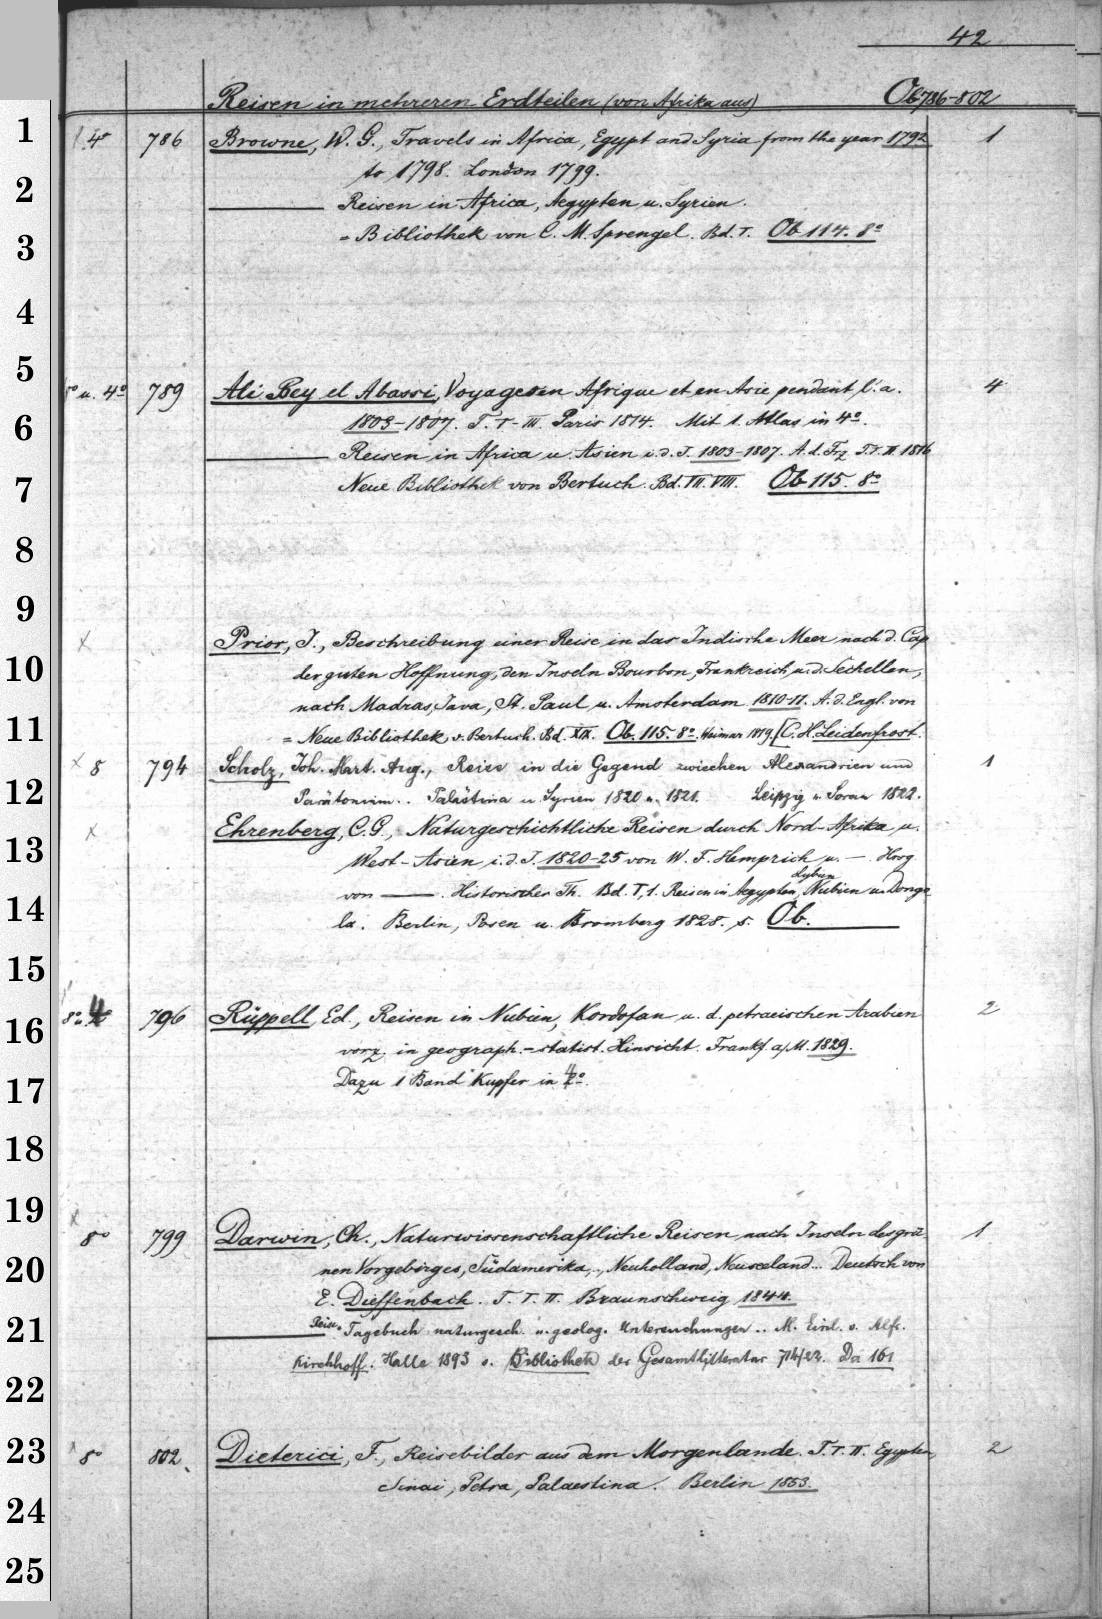 42
Reisen in mehreren Erdteilen (von Afrika aus) Ob 786-802
1
4° 786 Browne, W. G., Travels in Africa, Egypt and Syria from the year 1792 1
to 1798. London 1799.
2
——— Reisen in Africa, Aegypten u. Syrien.
= Bibliothek von C. M. Sprengel. Bd. I. Ob 114. 8°
3
4
5
8° u. 4° 789 Ali Bey el Abassi, Voyages en Afrique et en Asie pendant l. a. 4
6
1803-1807. T. I-III. Paris 1814. Mit 1. Atlas in 4°.
——— Reisen in Africa u. Asien i. d. J. 1803-1807. A. d. Frz. T. I. II. 1816
7
Neue Bibliothek von Bertuch. Bd. VII. VIII. Ob 115. 8°
8
9
x Prior, J., Beschreibung einer Reise in das Indische Meer nach d. Cap
10
der guten Hoffnung, den Inseln Bourbon, Frankreich, u. d. Sechellen,
nach Madras, Java, St. Paul u. Amsterdam 1810-11. A. d. Engl. von
11
= Neue Bibliothek v. Bertuch. Bd. XIX. Ob. 115. 8°. Weimar 1819. [C. H. Leidenfrost.
x 8 794 Scholz, Joh. Mart. Aug., Reise in die Gegend zwischen Alexandrien und 1
12
Parätonium.. Palästina u. Syrien 1820 u. 1821. Leipzig u. Sorau 1822.
x Ehrenberg, C. G., Naturgeschichtliche Reisen durch Nord-Afrika u.
13
West-Asien i. d. J. 1820-25 von W. F. Hemprich u. — Hrsg.
von ———. Historischer Th. Bd. I, 1. Reisen in Aegypten, Lybien Nubien u. Dongo-
14
la. Berlin, Posen u. Bromberg 1828. s. Ob.
15
8° u. 4° 796 Rüppell, Ed., Reisen in Nubien, Kordofan u. d. petraeischen Arabien 2
16
vorz. in geograph.-statist. Hinsicht. Frankf. a/M. 1829.
Dazu 1 Band Kupfer in 4°.
17
18
19
x
8° 799 Darwin, Ch., Naturwissenschaftliche Reisen nach Inseln des grü- 1
20
nen Vorgebirges, Südamerika,.., Neuholland, Neuseeland... Deutsch von
E. Dieffenbach. T. I. II. Braunschweig 1844.
21
——— Reise-Tagebuch naturgesch. u. geolog. Untersuchungen .. M. Einl. v. Alfr.
Kirchhoff. Halle 1893 s. Bibliothek der Gesamtlitteratur 714/23. Da 161
22
23
x 8° 802. Dieterici, F., Reisebilder aus dem Morgenlande. T. I. II. Egypten, 2
Sinai, Petra, Palaestina. Berlin 1853.
24
25